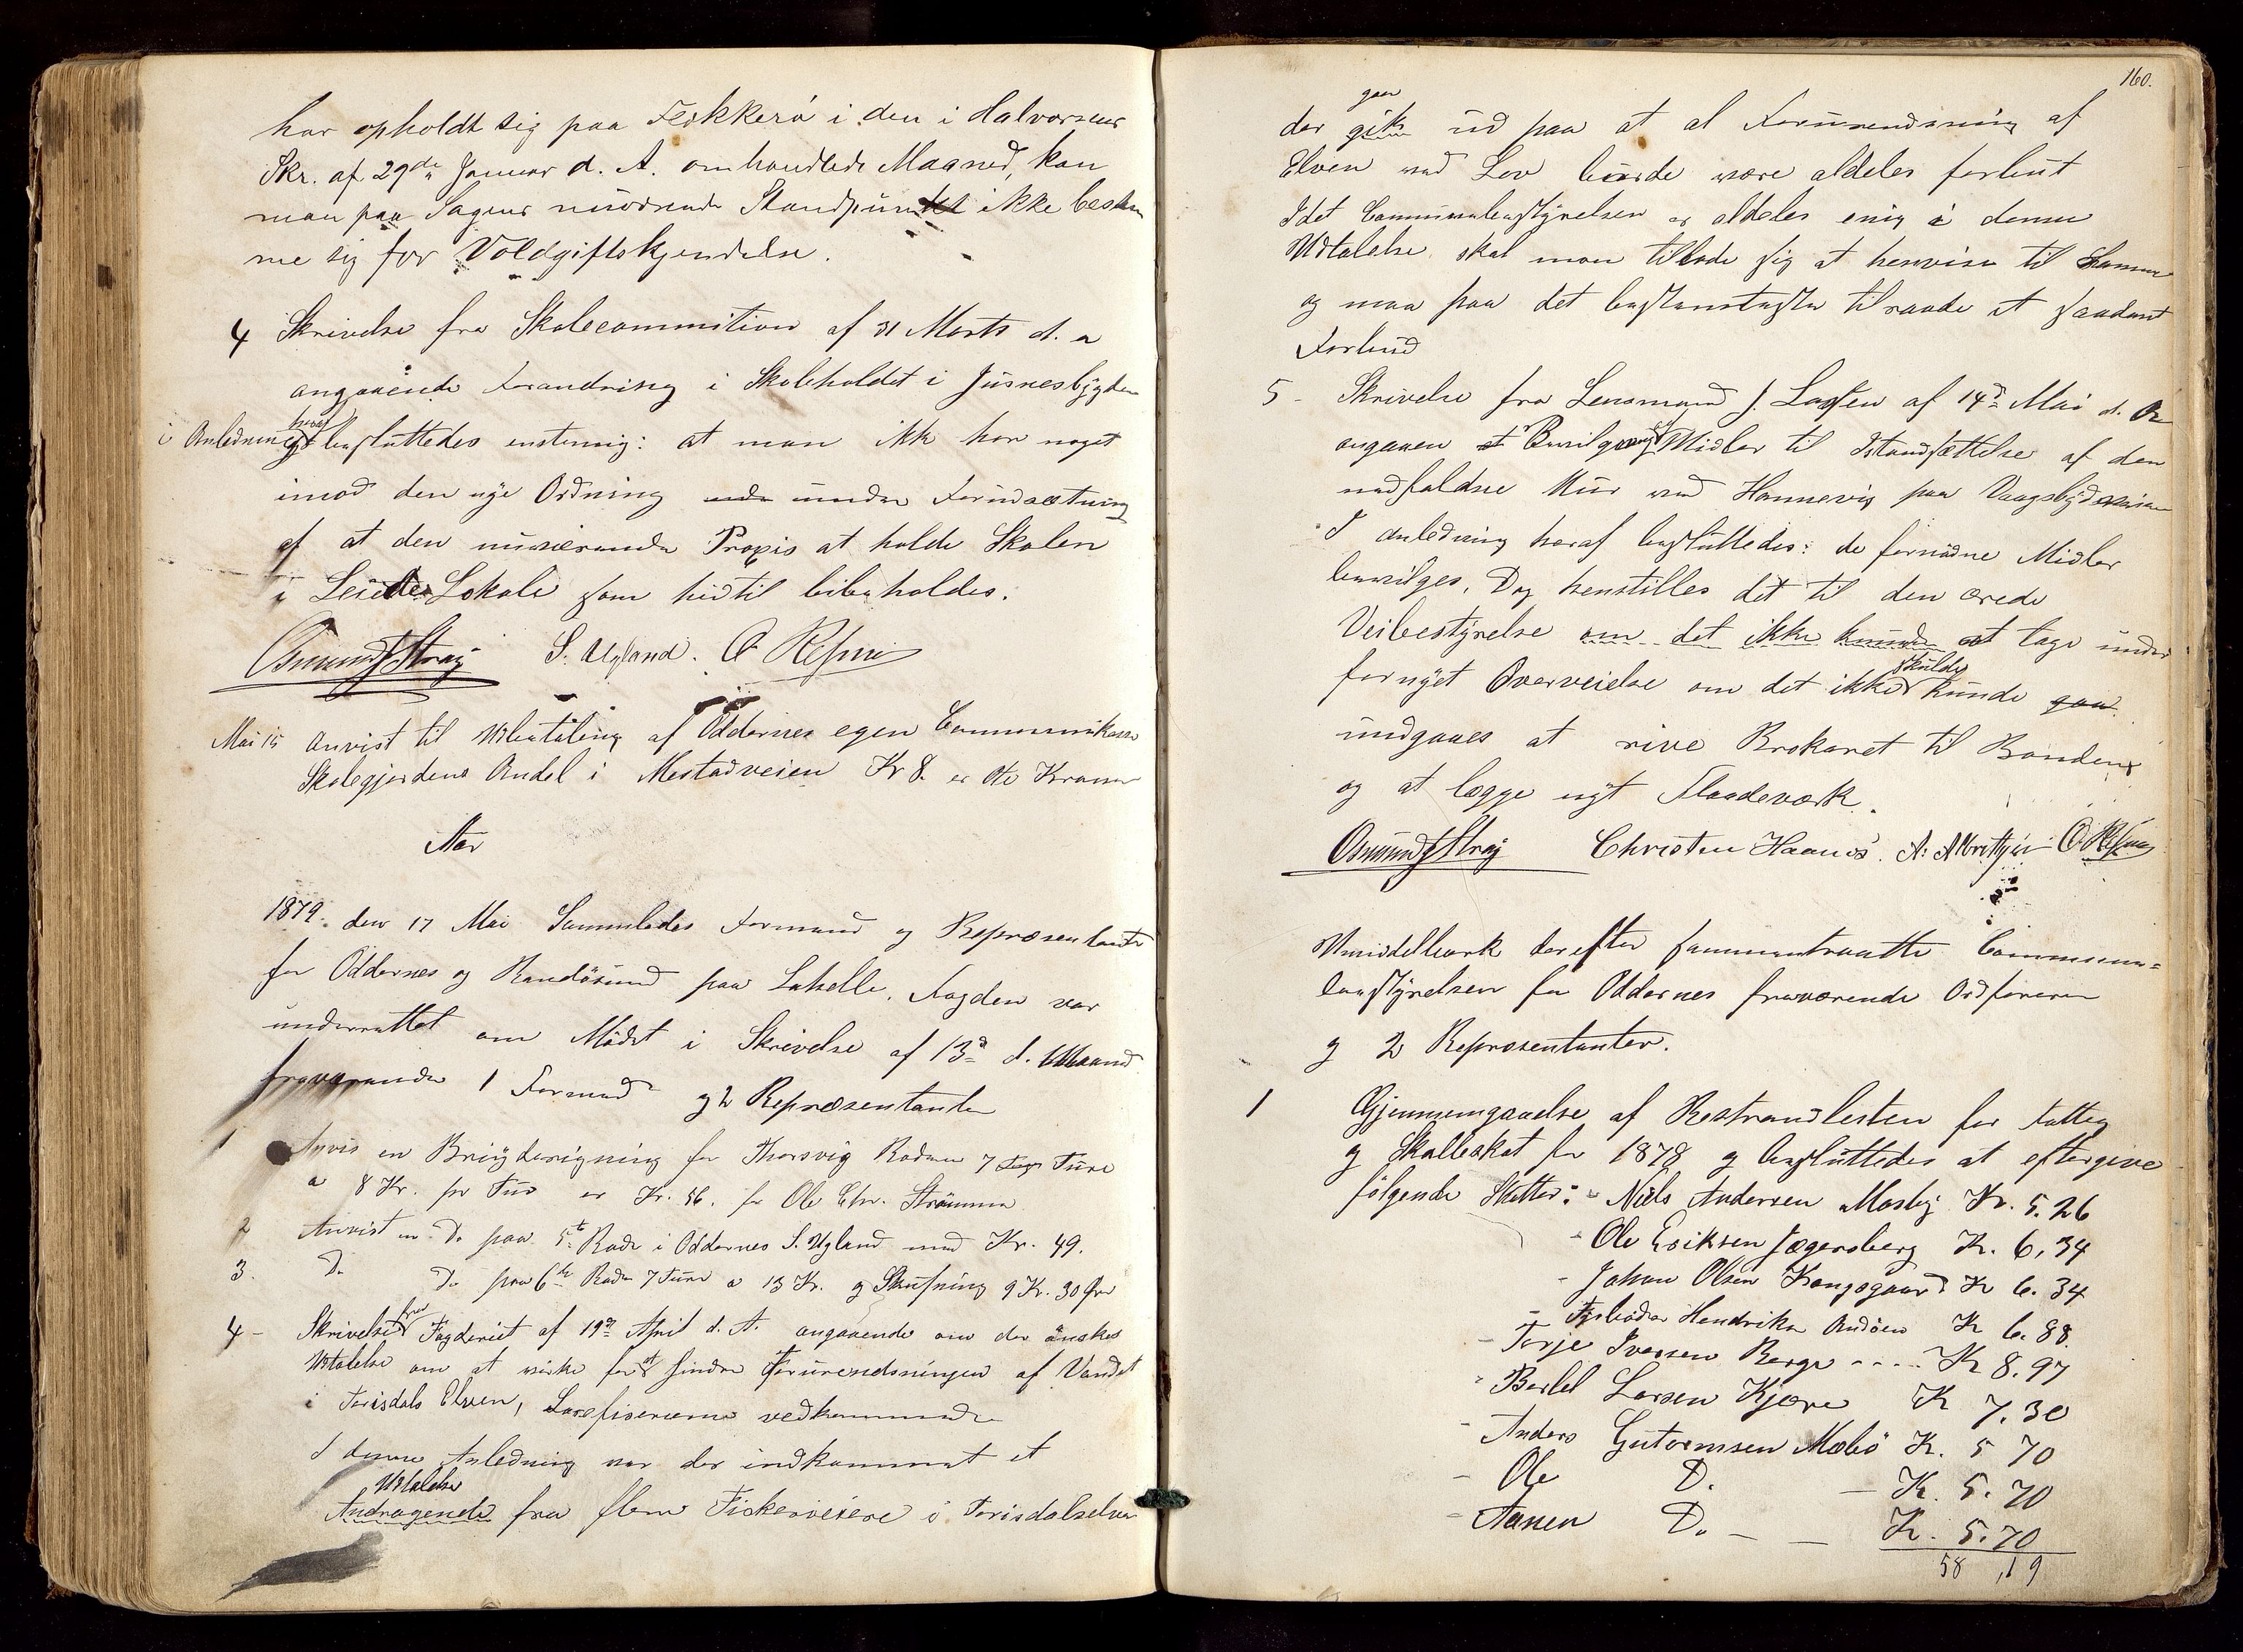 har opholdt sig paa Flekkerö i den i Halvorsens
Skr. af 29de Januar d. A. omhandlede Maaned, kan
man paa Sagens nuværende Standpunkt ikke bestem
me sig for Voldgiftskjendelse.
4 Skrivelse fra Skolecommition af 31 Marts d. a
angaaende Forandring i Skoleholdet i Jusnesbygden
i Anledning heraf besluttedes enstemig: at man ikke har noget
imod den nye Ordning under Forudsætning
af at den nuværende Praxis at holde Skolen
i Leiede Lokale som hidtil bibeholdes.
Osmund Stray S. Ugland. O Refsnes
Mai 15 Anvist til Udbetaling af Oddernes egen Communekasse
Skolegjordens Andel i Mestadveien Kr 8. er Otte Kroner
Aar
1879. den 17 Mai Sammledes Formænd og Repræsentanter
for Oddernes og Randösund paa Lahelle. Fogden var
underrettet om Mödet i Skrivelse af 13d d. Maaned
fraværende 1 Formand og 2 Repræsentanter
1 Anvis en Brøyderigning for Thorsvig Roden 7 Ture
a 8 Kr. pr Tur er Kr. 56. for Ole Chr. Strömme
2 Anvist en Do paa 5te Rode i Oddernes S. Ugland med Kr. 49.
3. Do Do paa 6te Rode 7 Ture a 13 Kr. og Skufning 9 Kr. 30 Øre
4 - Skrivelse fra Fogderiet af 19de April d. A. angaaende om der önskes
Udtalelse om at virke for at hindre Forurendsningen af Vandet
i Torisdals Elven, Laxefiskerierne vedkommende
I denne Anledning var der indkommet et
Udtalelse
Andragende fra flere Fiskerieiere i Torisdalselven
160.
gaar
der gik ud paa at al Forurendsning af
Elven ved Lov burde være aldeles forbut
Idet Communebestyrelsen er aldeles enig i denne
Udtalelse skal man tillade sig at henvise til Samme
og maa paa det bestemteste tilraade et saadant
Forbud
5 - Skrivelse fra Lensmand J. Lassen af 14de Mai d. A
angaaen Bevilgning af Midler til Istandsættelse af den
nedfaldne Mur ved Hannevig paa Vaagsbydveien
I anledning heraf besluttedes: de fornødne Midler
bevilges. Dog henstilles det til den ærede
Veibestyrelse om det ikke kunde at tage under
fornyet Overveielse om det ikke skulde kunde gaa
undgaaes at rive Brokaret til Bonden
og at lægge nyt Flaadeværk.
Osmund Stray Christen Haanes. A. Abrahamsen O Refsnes
Umiddelbark derefter sammentraadte Commune=
bestyrelsen for Oddernes fraværende Ordføreren
og 2 Repræsentanter.
1 Gjennemgaaelse af Restranslesten for Fattig
og Skolleskat for 1878 og besluttedes at eftergive
følgende Skatter: - Niels Andersen Mosby Kr. 5.26
- Ole Eriksen Jægersberg Kr. 6,34
- Johan Olsen Kongsgaard Kr 6.34
- Hendrikson Andöen Kr 6.88.
- Torje Iversen Berge .... Kr 8.97
- Bertel Larsen Kjære Kr 7.30
- Anders Gutormsen Mæbö Kr. 5 70
- Ole Do - Kr. 5.70
- Aanen Do - - Kr. 5.70
58,19